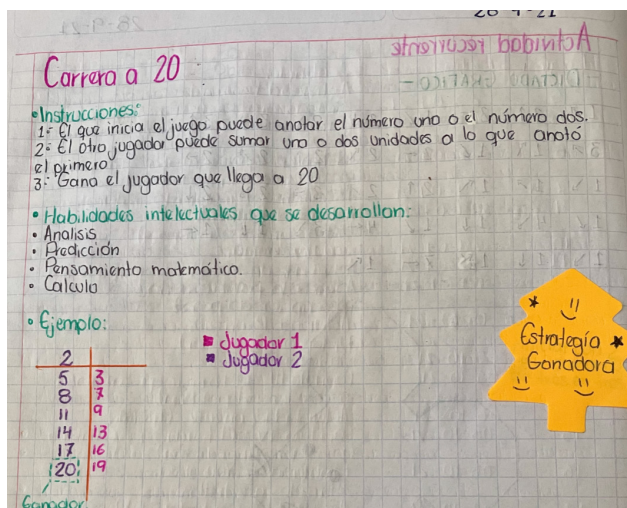 Carrera a 20
• Instrucciones:
1.- El que inicia el juego puede anotar el número uno o el número dos.
2.- El otro jugador puede sumar una o dos unidades a lo que anotó
el primero.
3.- Gana el jugador que llega a 20
• Habilidades intelectuales que se desarrollan:
• Analisis
• Predicción
• Pensamiento matemático.
• Calculo
• Ejemplo:
Jugador 1
Jugador 2
2
5 3
8 7
11 9
14 13
17 16
20 19
Ganador
Estrategia
Ganadora